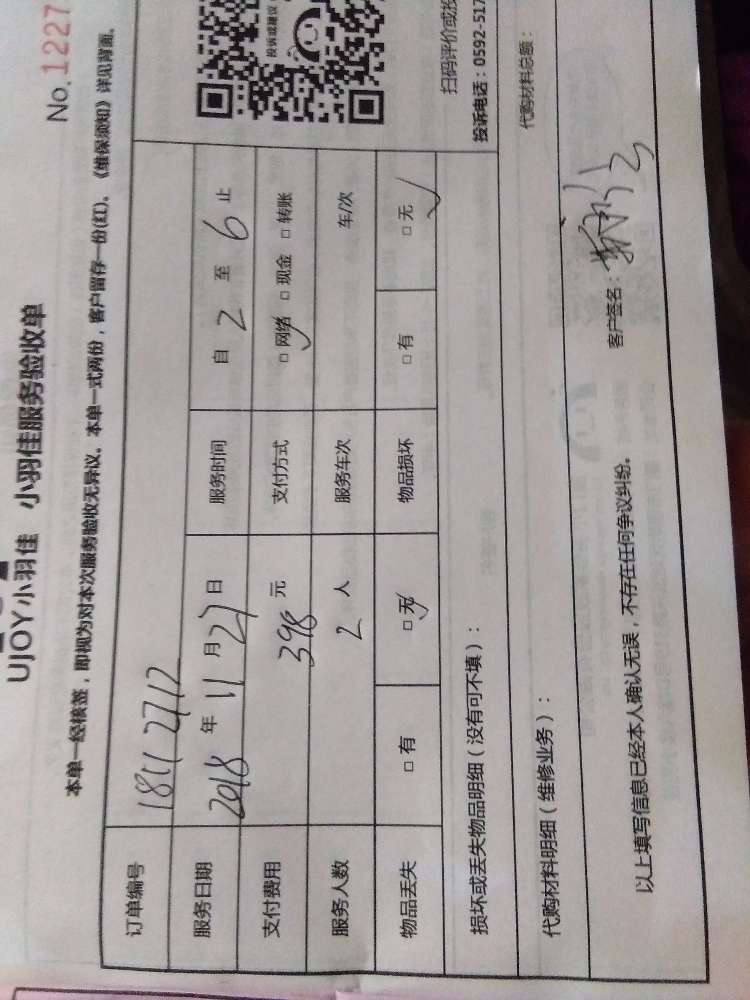 No.1227
UJOY小羽佳 小羽佳服务验收单
本单一经核签，即视为对本次服务验收无异议。本单一式两份，客户留存一份(红)。《维保须知》详见背面。
订单编号 18112712
投诉或建议
服务日期 2018 年 11 月 27 日 服务时间 自 2 至 6 止
支付费用 398 元 支付方式 □ 网络 □ 现金 □ 转账
服务人数 2 人 服务车次 车/次
物品丢失 □ 有 □ 无 物品损坏 □ 有 □ 无
扫码评价或投
投诉电话：0592-517
损坏或丢失物品明细（没有可不填）：
代购材料明细（维修业务）： 代购材料总额：
客户签名：
以上填写信息已经本人确认无误，不存在任何争议纠纷。